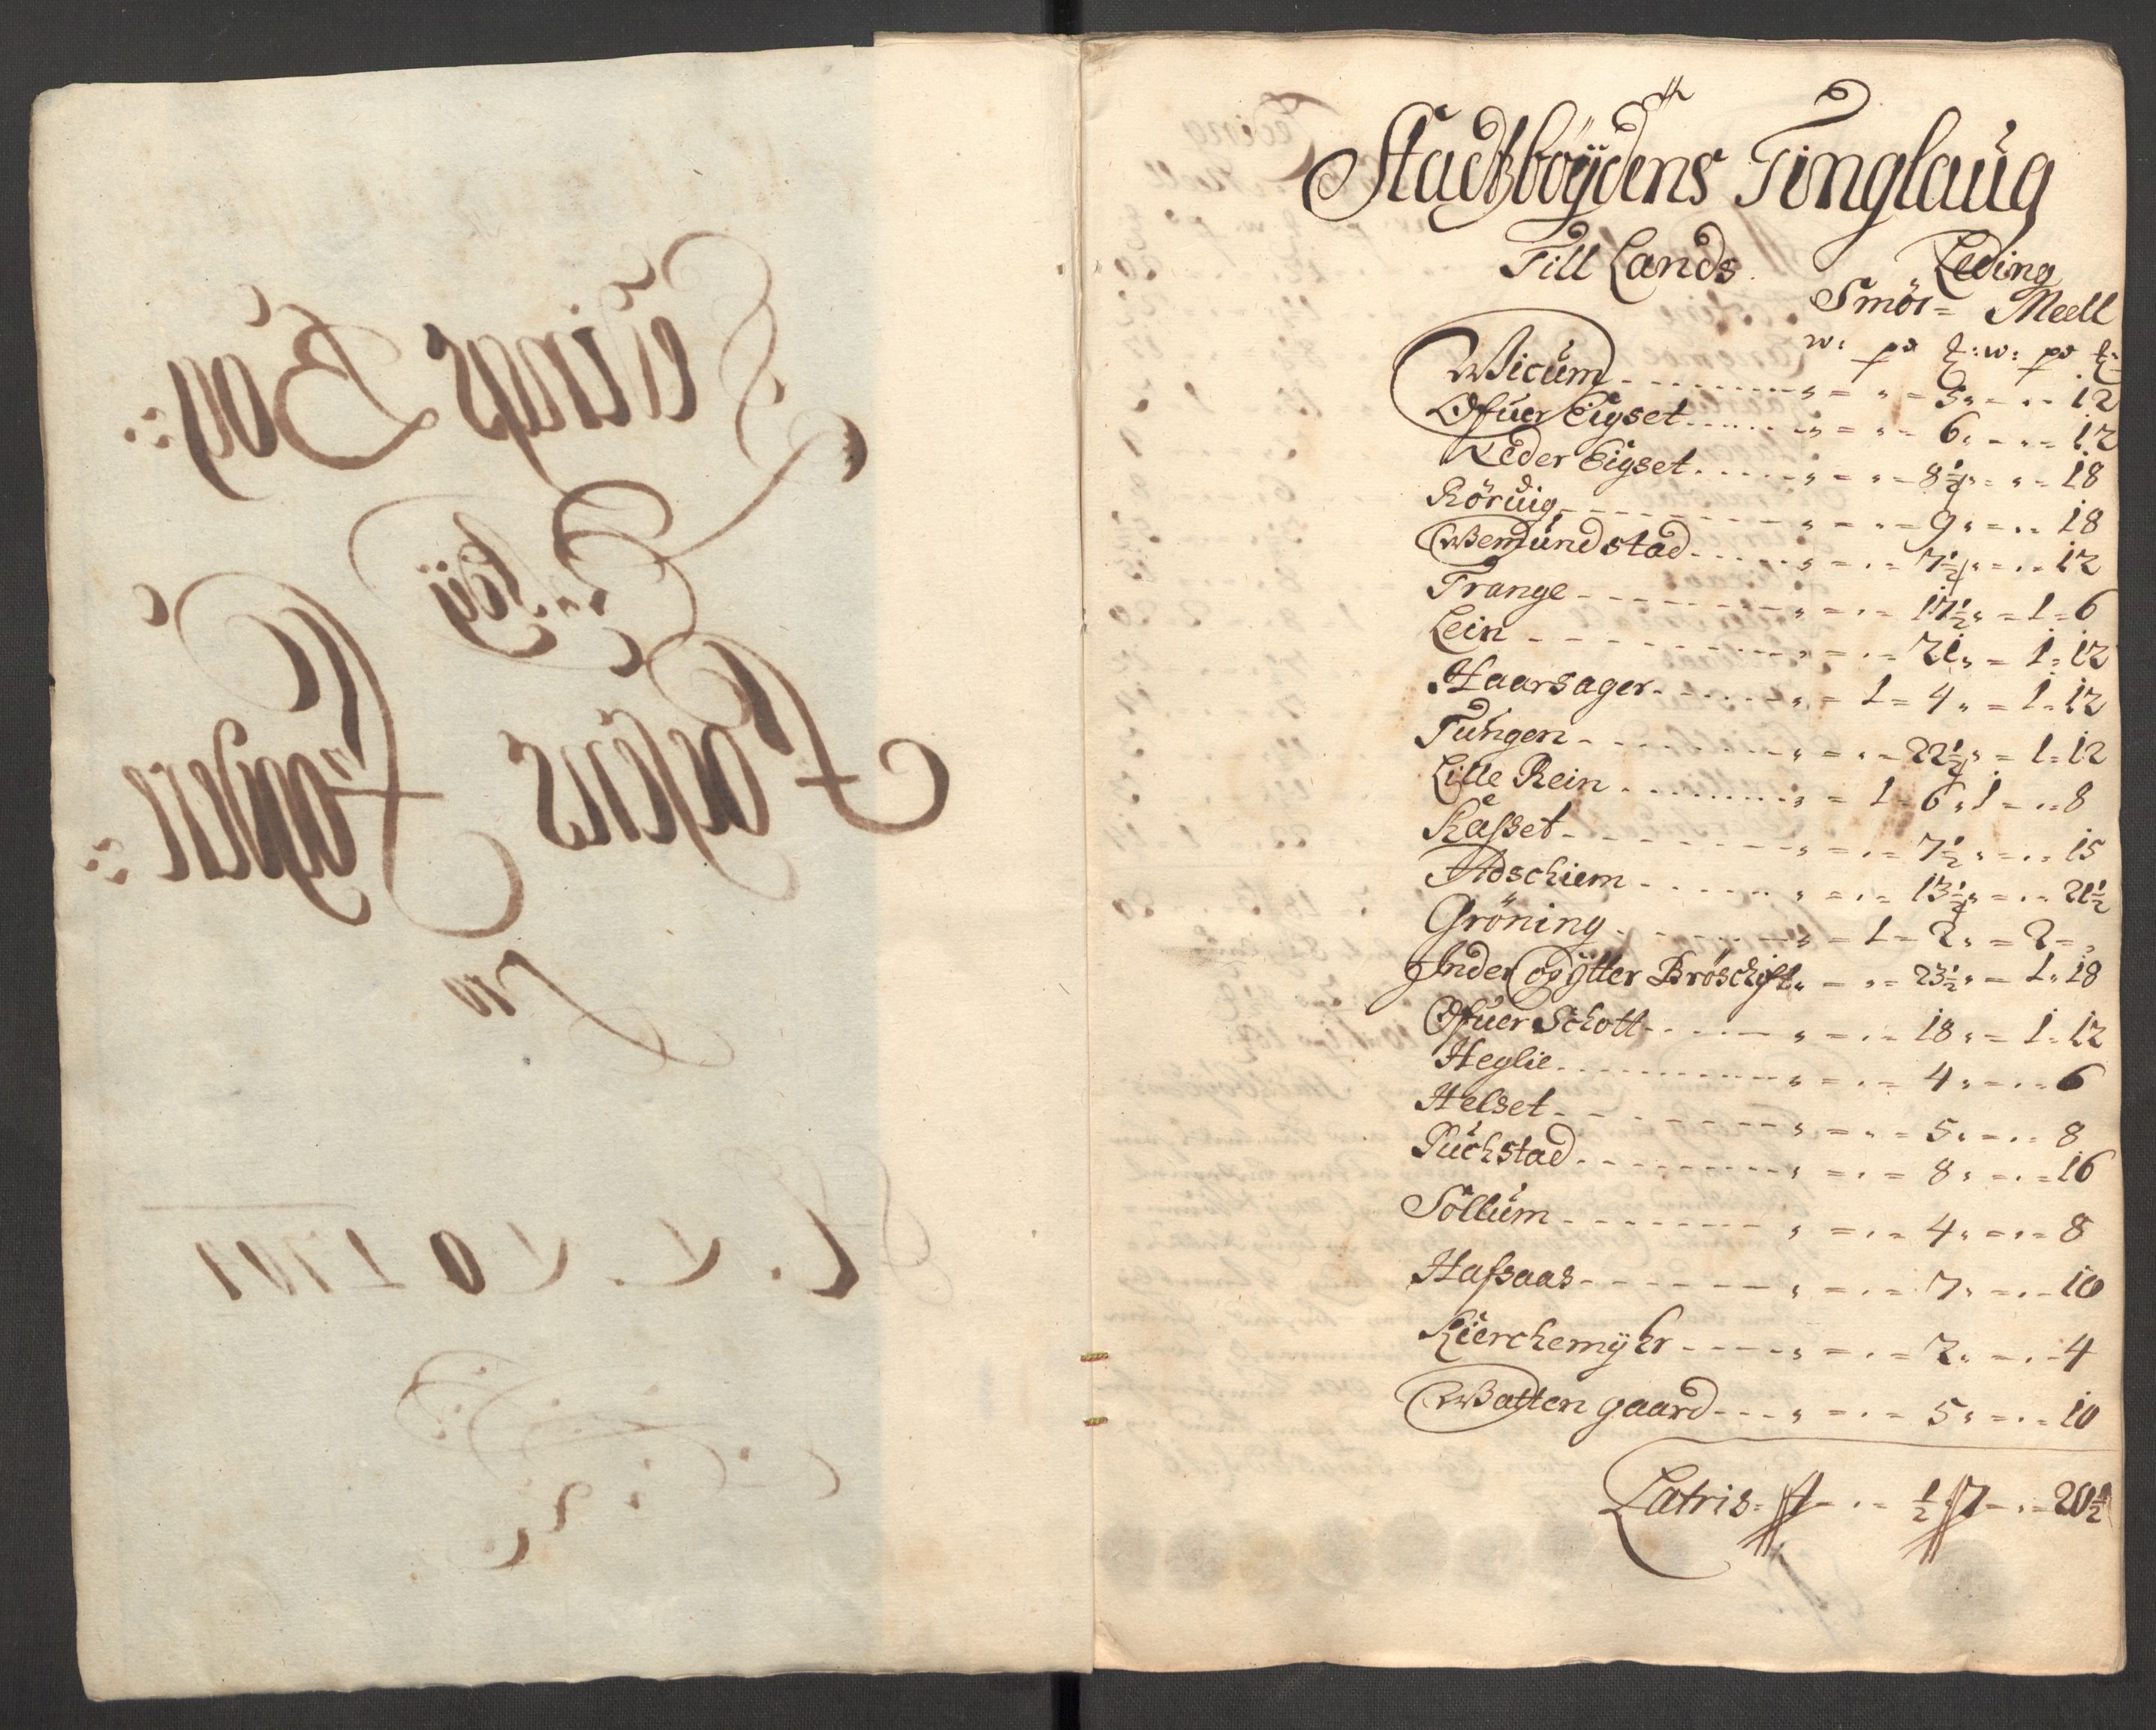 Ledings Bog
Foesens Fogderi
Pro
A. N. N. O. 1701
Stadtzböÿdens Tinglaug
Till Lands
Leding
Smör = Meell
w: pd ℔: w: pd ℔:
Wicum - - - - " = " = 5 " = " = 12
Øfuer Eigset - - - - " = " = 6 " = " = 12
Neder Eigset - - - - " = " = 8½ " = " = 18
Rörvig - - - - " = " = 9 " = " = 18
Wemundstad - - - - " = " = 7½ " = " = 12
Trange - - - - " = " = 17½ " = 1 = 6
Lein - - - - " = " = 21 " = 1 = 12
Haarsager - - - - " = 1 = 4 " = 1 = 12
Tungen - - - - " = " = 22½ " = 1 = 12
Lille Rein - - - - " = 1 = 6 " 1 = " = 8
Rasset - - - - " = " = 7½ " = " = 15
Adschiem - - - - " = " = 13½ " = " = 21½
Gröning - - - - " = 1 = 2 " = 2 = "
Inder og ÿtter Bröschift " = " = 23½ " = 1 = 18
Øfuer Schott - - - - " = " = 18 " = 1 = 12
Heglie - - - - " = " = 4 " = " = 6
Helset - - - - " = " = 5 " = " = 8
Puchstad - - - - " = " = 8 " = " = 16
Sollum - - - - " = " = 4 " = " = 8
Hafsaas - - - - " = " = 7 " = " = 10
Kierchemÿhr - - - - " = " = 2 " = " = 4
Watten gaard - - - - " = " = 5 " = " = 10
Latris = 4 = " = ½ " 7 = " = 20½